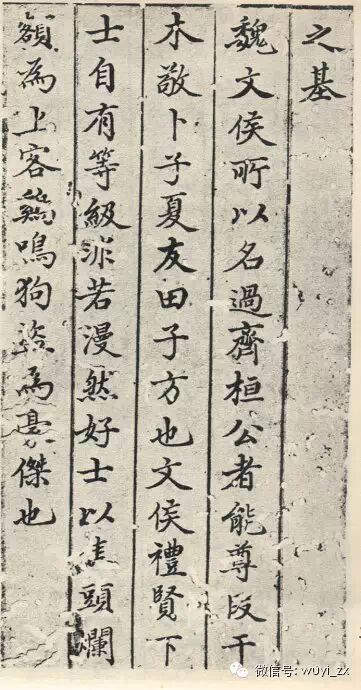 之基
魏文侯所以名過齊桓公者能尊段干
木敬卜子夏友田子方也文侯禮賢下
士自有等級非若漫然好士以焦頭爛
額為上客鷄鳴狗盜為豪傑也
微信号: wuyi_zx